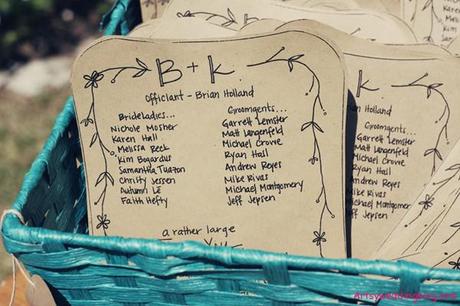 B + K
Officiant - Brian Holland
Brideladies...
Nichole Mosher
Karen Hall
Melissa Reck
Kim Bogardus
Samantha Tuazon
Christy Jensen
Autumn Le
Faith Hefty
Groomgents...
Garrett Lemster
Matt Langenfeld
Michael Crowe
Ryan Hall
Andrew Reyes
Mike Rivas
Michael Montgomery
Jeff Jepsen
a rather large
K
Holland
Groomgents...
Garrett Lemster
Matt Langenfeld
Michael Crowe
Ryan Hall
Andrew Reyes
Mike Rivas
Michael Montgomery
Jeff Jepsen